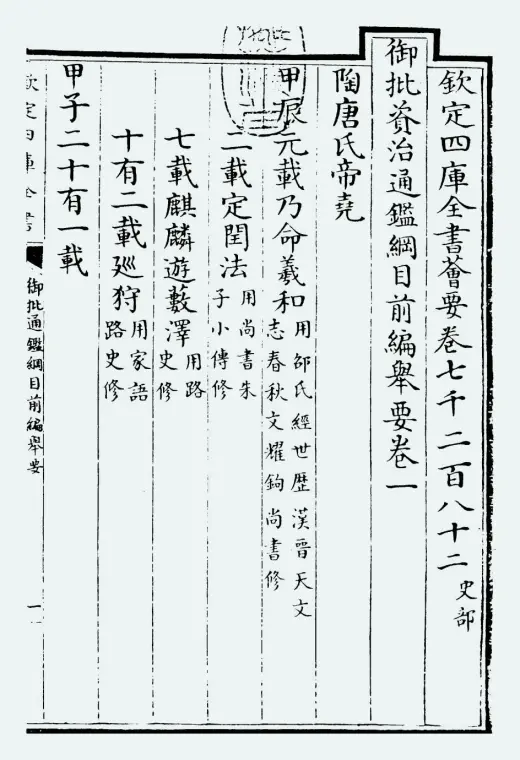 欽定四庫全書薈要卷七千二百八十二 史部
御批資治通鑑綱目前編舉要卷一
陶唐氏帝堯
甲辰元載乃命羲和 用邵氏經世歷漢晉天文
志春秋文耀鉤尚書修
二載定閏法 用尚書朱
子小傳修
七載麒麟遊藪澤 用路
史修
十有二載廵狩 用家語
路史修
甲子二十有一載
欽定四庫全書
御批通鑑綱目前編舉要
一